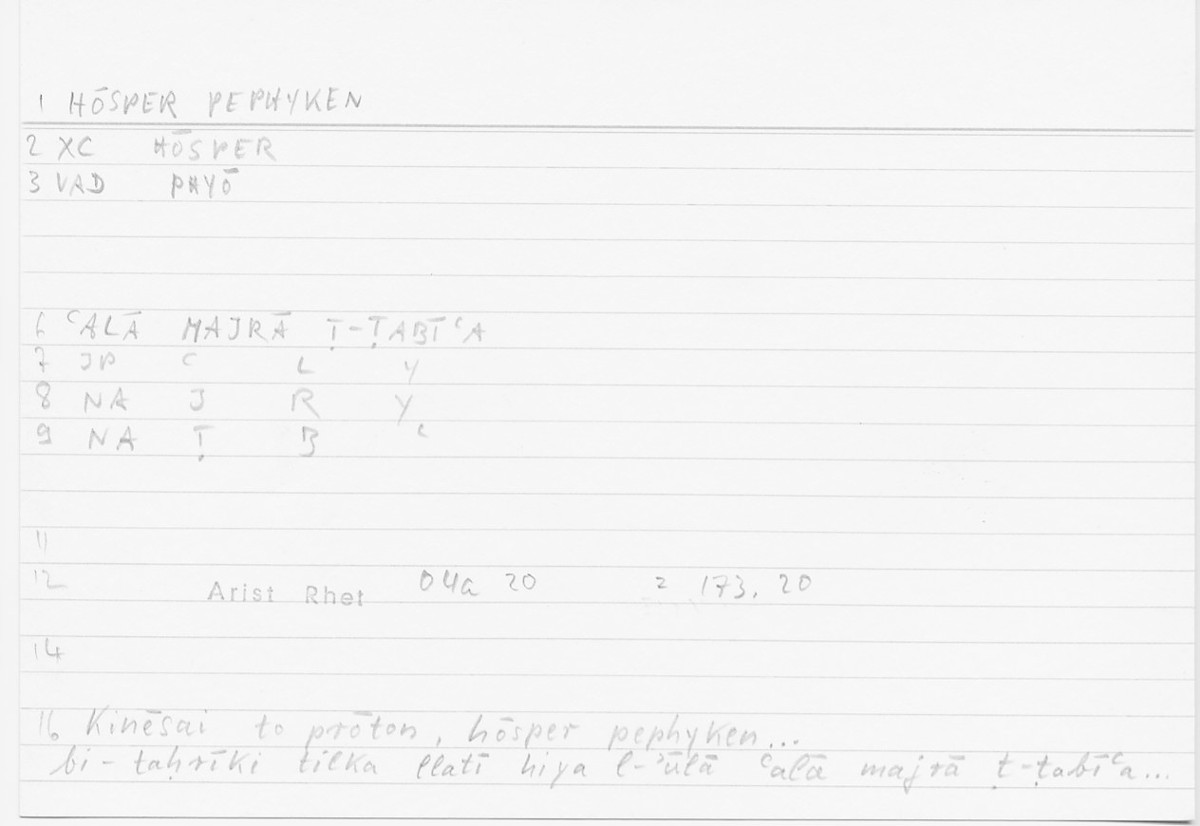 1 HŌSPER PEPHYKEN
2 XC HŌSPER
3 VAD PHYŌ
6 ʿALĀ MAJRĀ Ṭ-ṬABĪʿA
7 JP ʿ L Y
8 NA J R Y
9 NA Ṭ B ʿ
11
12 Arist Rhet 04a 20 = 173.20
14
16 Kinēsai to prōton, hōsper pephyken...
bi-taḥrīki tilka llatī hiya l-ʾūlā ʿalā majrā ṭ-ṭabīʿa...